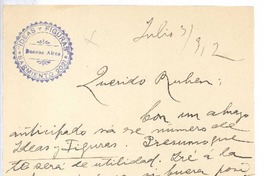 IDEAS Y FIGURAS
Buenos Aires
SARMIENTO 2021
Julio 3/912
Querido Ruben:
Con un abrazo
anticipado va ese numero de
Ideas y Figuras. Presumo que
te será de utilidad. Iré á la